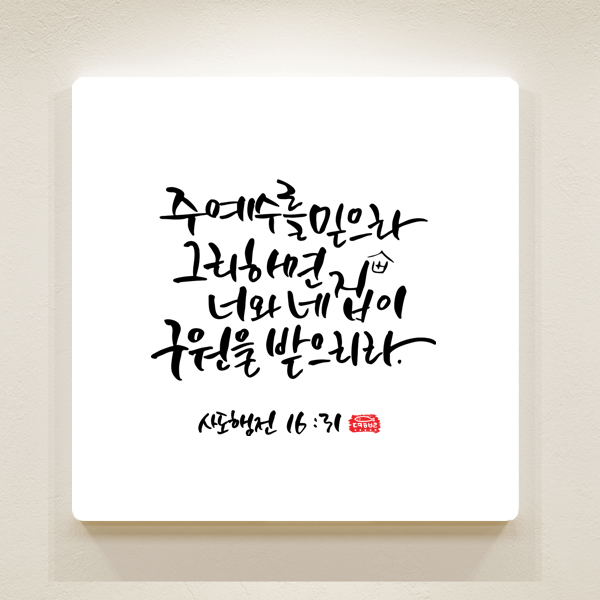 주 예수를 믿으라
그리하면
너와 네 집이
구원을 받으리라.
사도행전 16:31